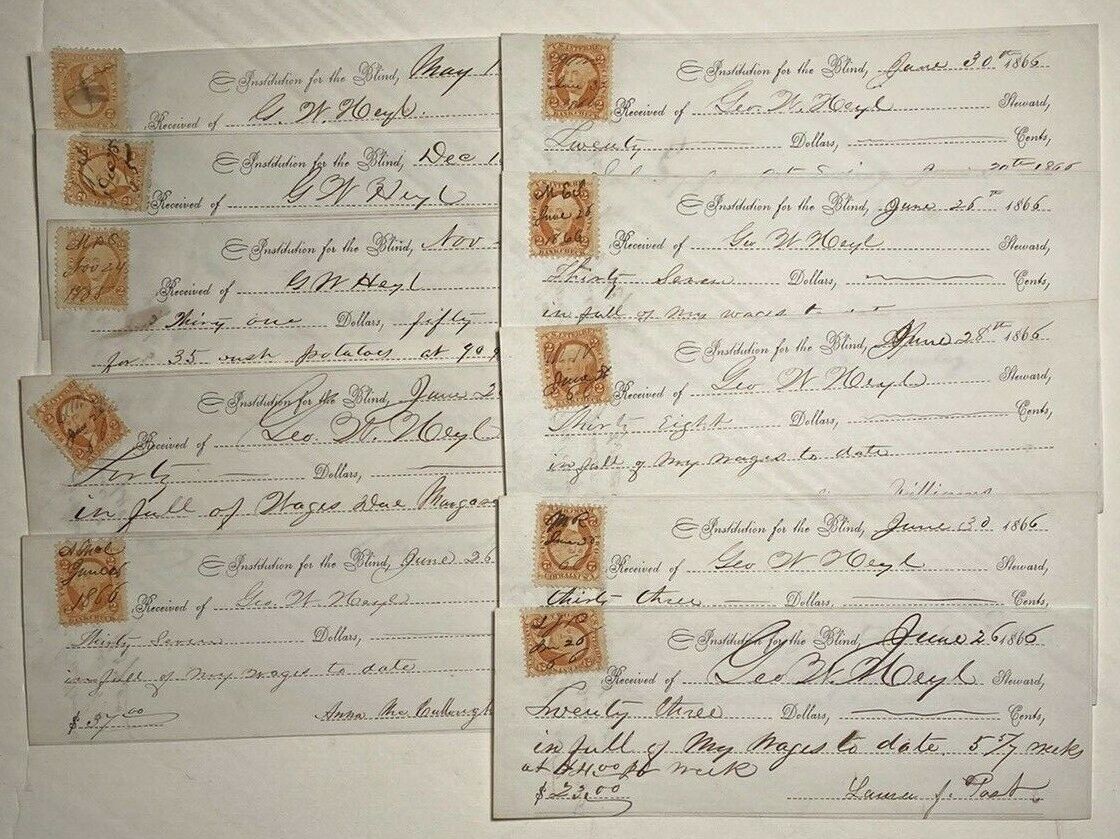 Institution for the Blind, May 1
Received of G. W. Heyl.
Institution for the Blind, Dec 1
Received of G W Heyl
Institution for the Blind, Nov
Received of G W Heyl
Thirty one Dollars, fifty
for 35 bush potatoes at 90
Institution for the Blind, June 2
Received of Geo. W. Heyl
Forty Dollars,
in full of Wages due
June 26
1866
Institution for the Blind, June 26
Received of Geo W. Heyl
Thirty Seven Dollars,
in full of my wages to date
$37.00
Anna McCullough
Institution for the Blind, June 30th 1866
Received of Geo. W. Heyl Steward,
Twenty Dollars, Cents,
20th 1866
June 28
1866
Institution for the Blind, June 26th 1866
Received of Geo W Heyl Steward,
Thirty Seven Dollars, Cents,
in full of my wages
Institution for the Blind, June 28th 1866
Received of Geo W Heyl Steward,
Thirty Eight Dollars, Cents,
in full of my wages to date
Williams
Institution for the Blind, June 30 1866
Received of Geo W Heyl Steward,
thirty three Dollars, Cents,
Institution for the Blind, June 26 1866
Received of Geo W. Heyl Steward,
Twenty three Dollars, Cents,
in full of my wages to date. 5 5/7 weeks
at $4.00 pr week
$23.00
Laura J. Post